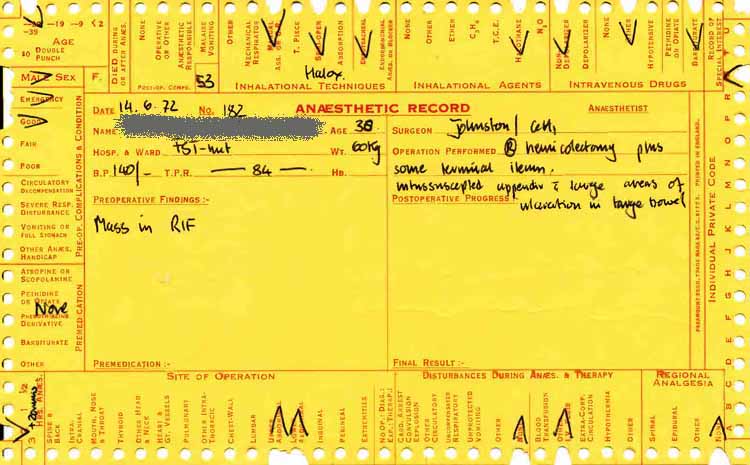 -39 -19 -9 <2
AGE
DOUBLE
PUNCH
MALE SEX F.
DIED DURING
OR AFTER ANÆS.
NONE
OPERATIVE
OR OTHER
ANÆSTHETIC
RESPONSIBLE
MALAISE
VOMITING
OTHER
POST-OP. COMPS.
53
MECHANICAL
RESPIRATOR
T. PIECE
ABSORPTION
Halox.
INHALATIONAL TECHNIQUES
NONE
OTHER
ETHER
C₃H₆
T.C.E.
HALOTHANE
N₂O
INHALATIONAL AGENTS
NON-DEPOLARIZER
DEPOLARIZER
NONE
OTHER
HYPOTENSIVE
PETHIDINE
OR OPIATE
BARBITURATE
INTRAVENOUS DRUGS
RECORD OF
SPECIAL INTEREST
EMERGENCY
GOOD
FAIR
POOR
CIRCULATORY
DECOMPENSATION
SEVERE RESP.
DISTURBANCE
VOMITING OR
FULL STOMACH
OTHER ANÆS.
HANDICAP
PRE-OP. COMPLICATIONS & CONDITION
ATROPINE OR
SCOPOLAMINE
PETHIDINE
OR OPIATE
None
PHENOTHIAZINE
DERIVATIVE
BARBITURATE
OTHER
PREMEDICATION
DATE 14.6.72 No. 182 ANÆSTHETIC RECORD ANÆSTHETIST
NAME AGE 38 SURGEON Johnston/
HOSP. & WARD WT. 60Kg OPERATION PERFORMED Ⓡ hemicolectomy plus
B.P. 140/- T.P.R. — 84 — HB. some terminal ileum.
intussuscepted appendix & large areas of
PREOPERATIVE FINDINGS :- POSTOPERATIVE PROGRESS :- ulceration in large bowel
Mass in RIF
PREMEDICATION :- FINAL RESULT :-
PRINTED IN ENGLAND.
INDIVIDUAL PRIVATE CODE
A B C D E F G H I J K L M N O P R
SITE OF OPERATION
SPINE &
BACK
INTRA-
CRANIAL
MOUTH, NOSE
& THROAT
THYROID
OTHER HEAD
& NECK
HEART &
GT. VESSELS
PULMONARY
OTHER INTRA-
THORACIC
CHEST-WALL
LUMBAR
INGUINAL
PERINEAL
EXTREMITIES
DISTURBANCES DURING ANÆS. & THERAPY
CARD. ARREST
CONVULSION
EXPLOSION
OTHER
CIRCULATORY
UNCOMPENSATED
RESPIRATORY
UNPROTECTED
VOMITING
OTHER
NONE
BLOOD
TRANSFUSION
EXTRA-CORP.
CIRCULATION
HYPOTHERMIA
OTHER
REGIONAL
ANALGESIA
SPINAL
EPIDURAL
OTHER